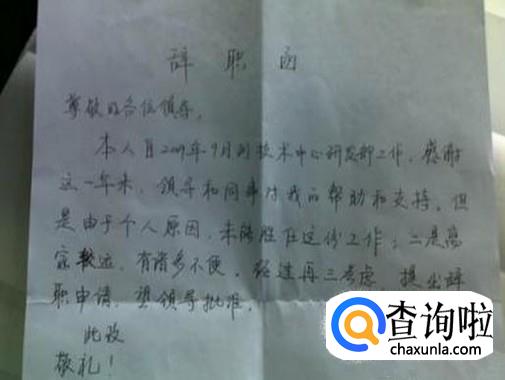 辞职函
尊敬的各位领导,
本人自2009年9月到技术中心研发部工作,感谢
这一年来,领导和同事对我的帮助和支持。但
是由于个人原因,未能胜任这份工作;二是离
家较远,有诸多不便。经过再三考虑,提出辞
职申请,望领导批准。
此致
敬礼!
查询啦
chaxunla.com